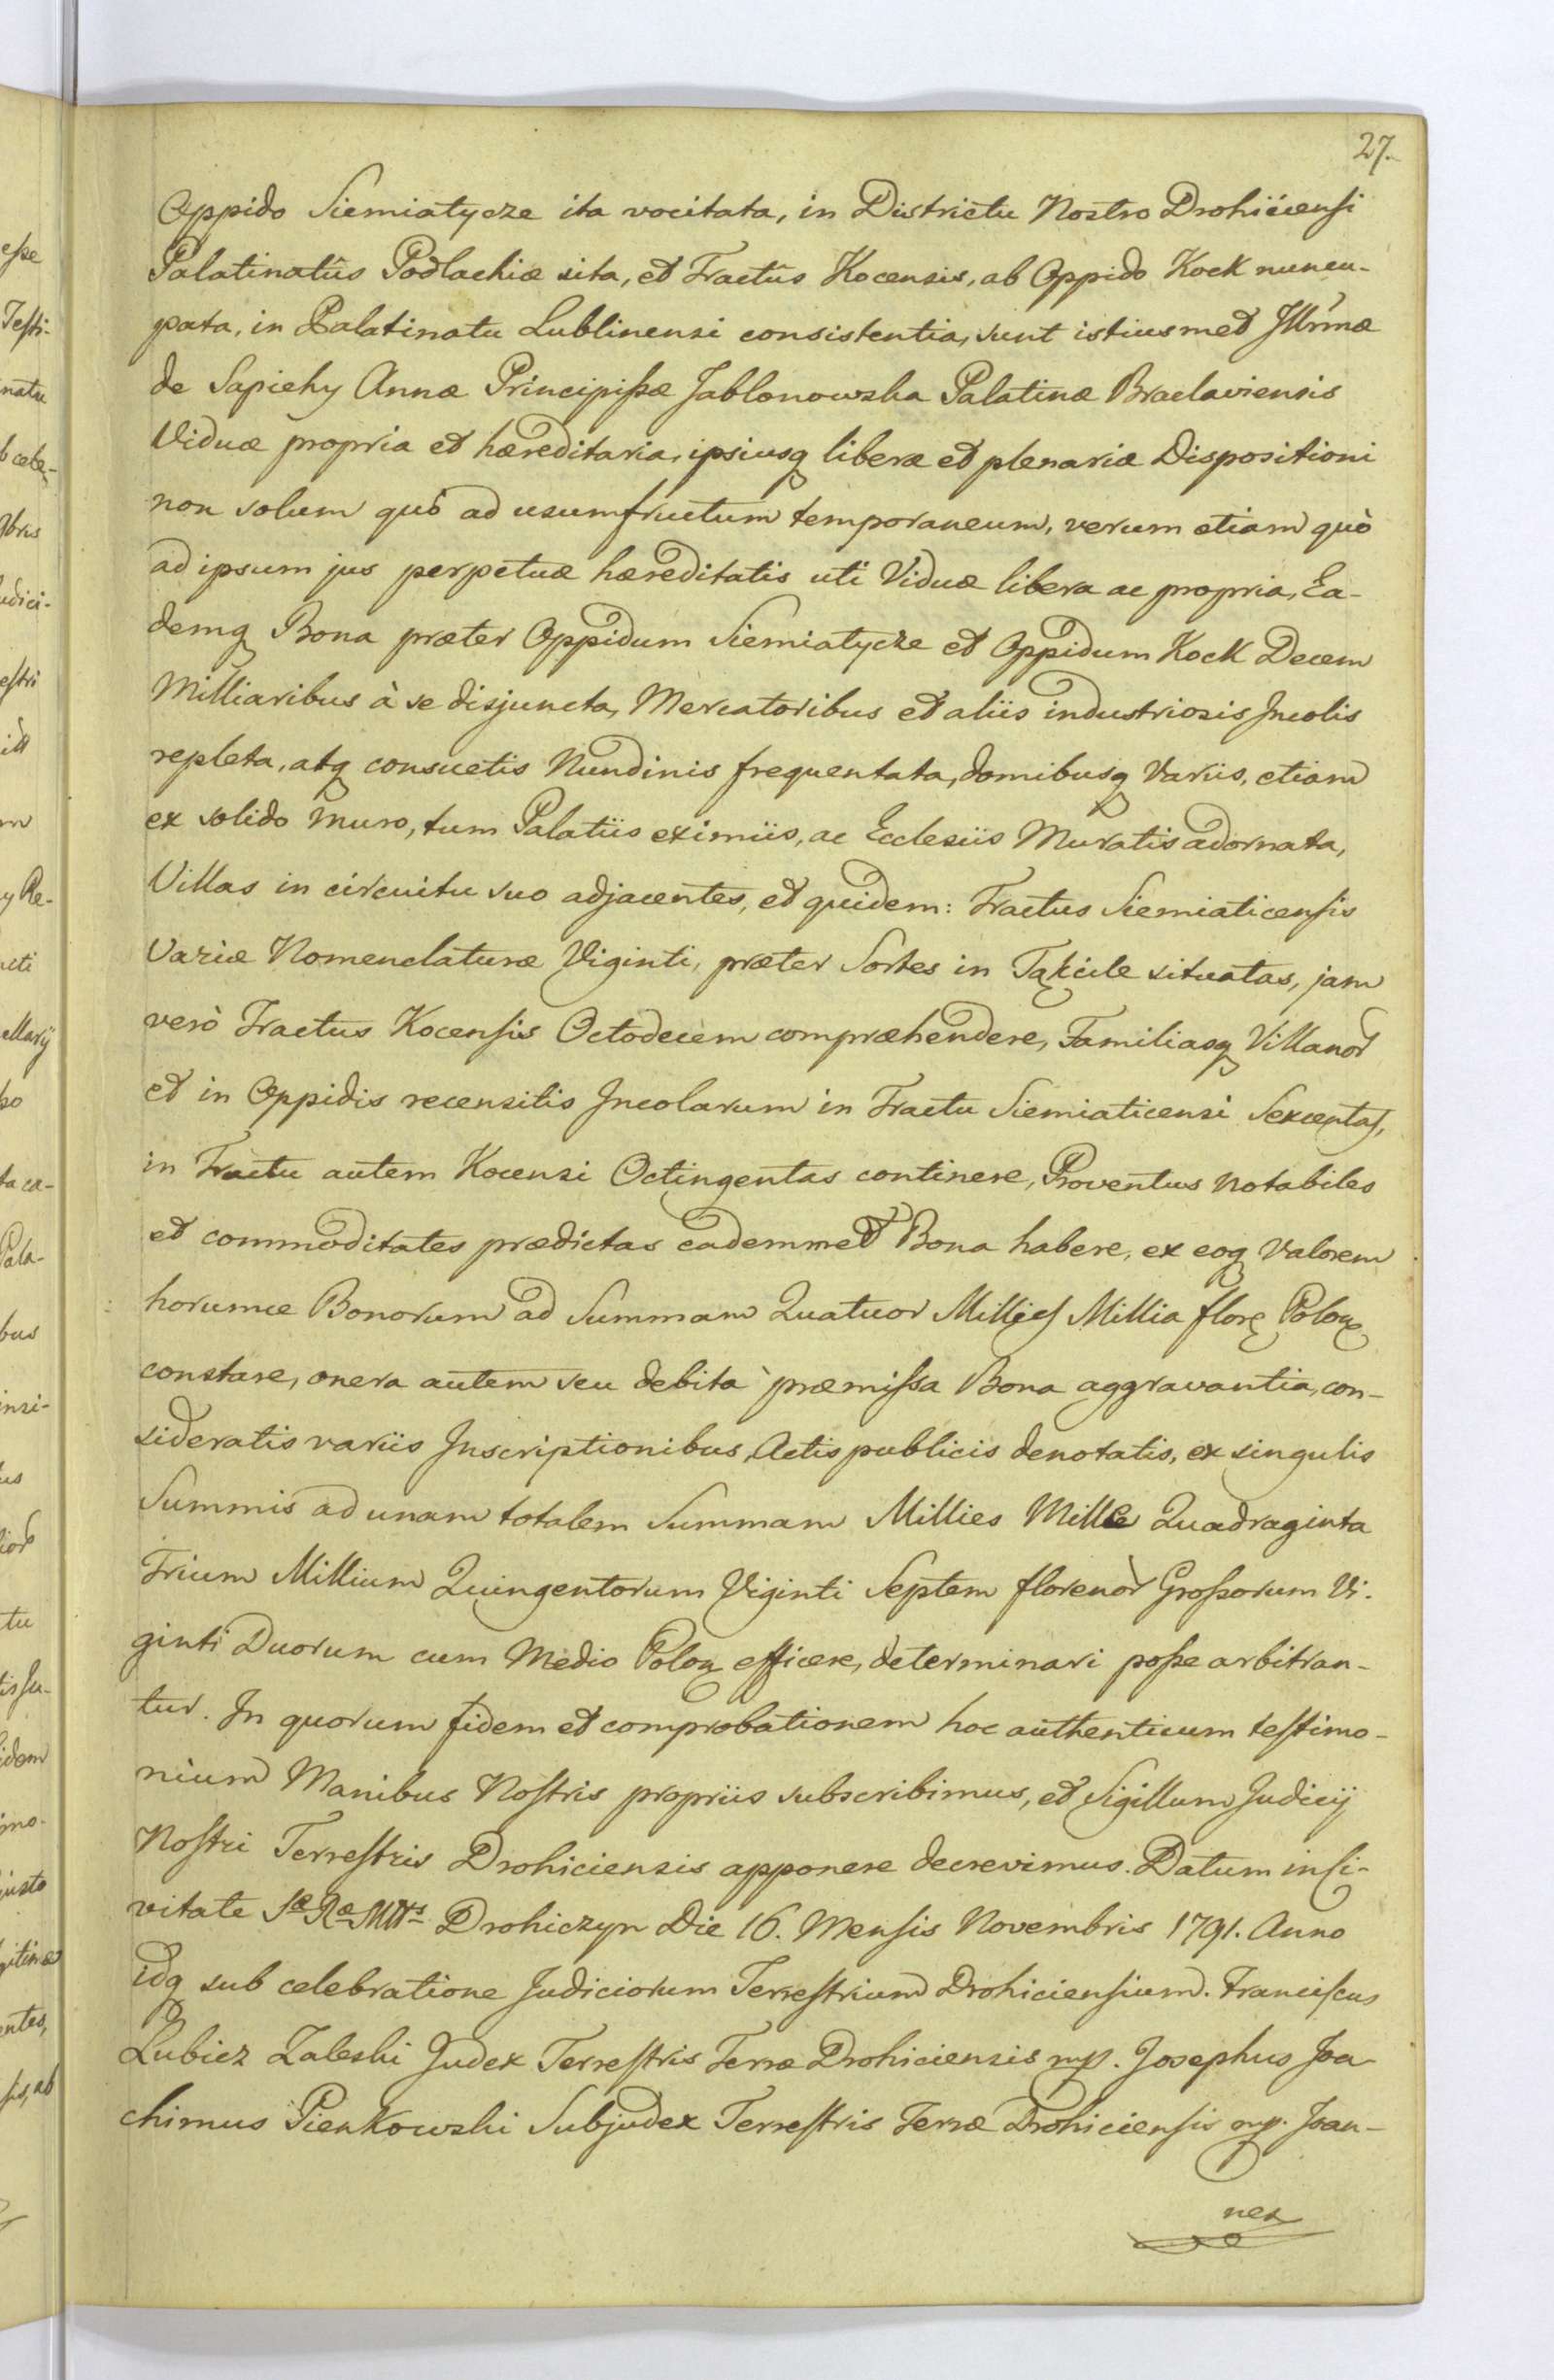 27.
Oppido Siemiatycze ita vocitata, in Districtu Nostro Drohiciensi
Palatinatûs Podlachiæ sita, et Tractûs Kocensis, ab Oppido Kock nuncu-
pata, in Palatinatu Lublinensi consistentia, sunt istiusmet Jllrmæ
de Sapiehy Annæ Principißæ Jablonowska Palatinæ Braclaviensis
Viduæ propria et hæreditaria, ipsiusq liberæ et plenariæ Dispositioni
non solum quò ad usumfructum temporaneum, verum etiam quò
ad ipsum jus perpetuæ hæreditatis uti Viduæ libera ac propria, Ea-
demq Bona præter Oppidum Siemiatycze et Oppidum Kock Decem
Milliaribus à se disjuncta, Mercatoribus et aliis industriosis Jncolis
repleta, atq consuetis Nundinis frequentata, domibusq Variis, etiam
ex solido muro, tum Palatiis eximiis, ac Ecclesiis Muratis adornata,
Villas in circuitu suo adjacentes, et quidem: Tractus Siemiaticensis
Variæ Nomenclaturæ Viginti, præter Sortes in situatas, jam
verò Tractus Kocensis Octodecem compræhendere, Familiasq Villanor
et in Oppidis recensitis Jncolarum in Tractu Siemiaticensi Sexcentas,
in Tractu autem Kocensi Octingentas continere, Proventus notabiles
et commoditates prædictas eademmet Bona habere, ex eoq Valorem
horumce Bonorum ad Summam Quatuor Millies Millia flor Polon
constare, onera autem seu debita præmissa Bona aggravantia, con-
sideratis variis Jnscriptionibus, Actis publicis denotatis, ex singulis
Summis ad unam totalem Summam Millies Mille Quadraginta
Trium Millium Quingentorum Viginti Septem florenòr Großorum Vi-
ginti Duorum cum Medio Polon efficere, determinari poße arbitran-
tur. In quorum fidem et comprobationem hoc authenticum testimo-
nium Manibus Nostris propriis subscribimus, et Sigillum Judicij
Nostri Terrestris Drohiciensis apponere decrevimus. Datum in Ci-
vitate Sæ Ræ Mttis Drohiczyn Die 16. Mensis Novembris 1791. Anno
idq sub celebratione Judiciorum Terrestrium Drohiciensium. Franciscus
Lubicz Zaleski Judex Terrestris Terræ Drohiciensis mp. Josephus Joa-
chimus Pienkowski Subjudex Terrestris Terræ Drohiciensis mp. Joan-
nes